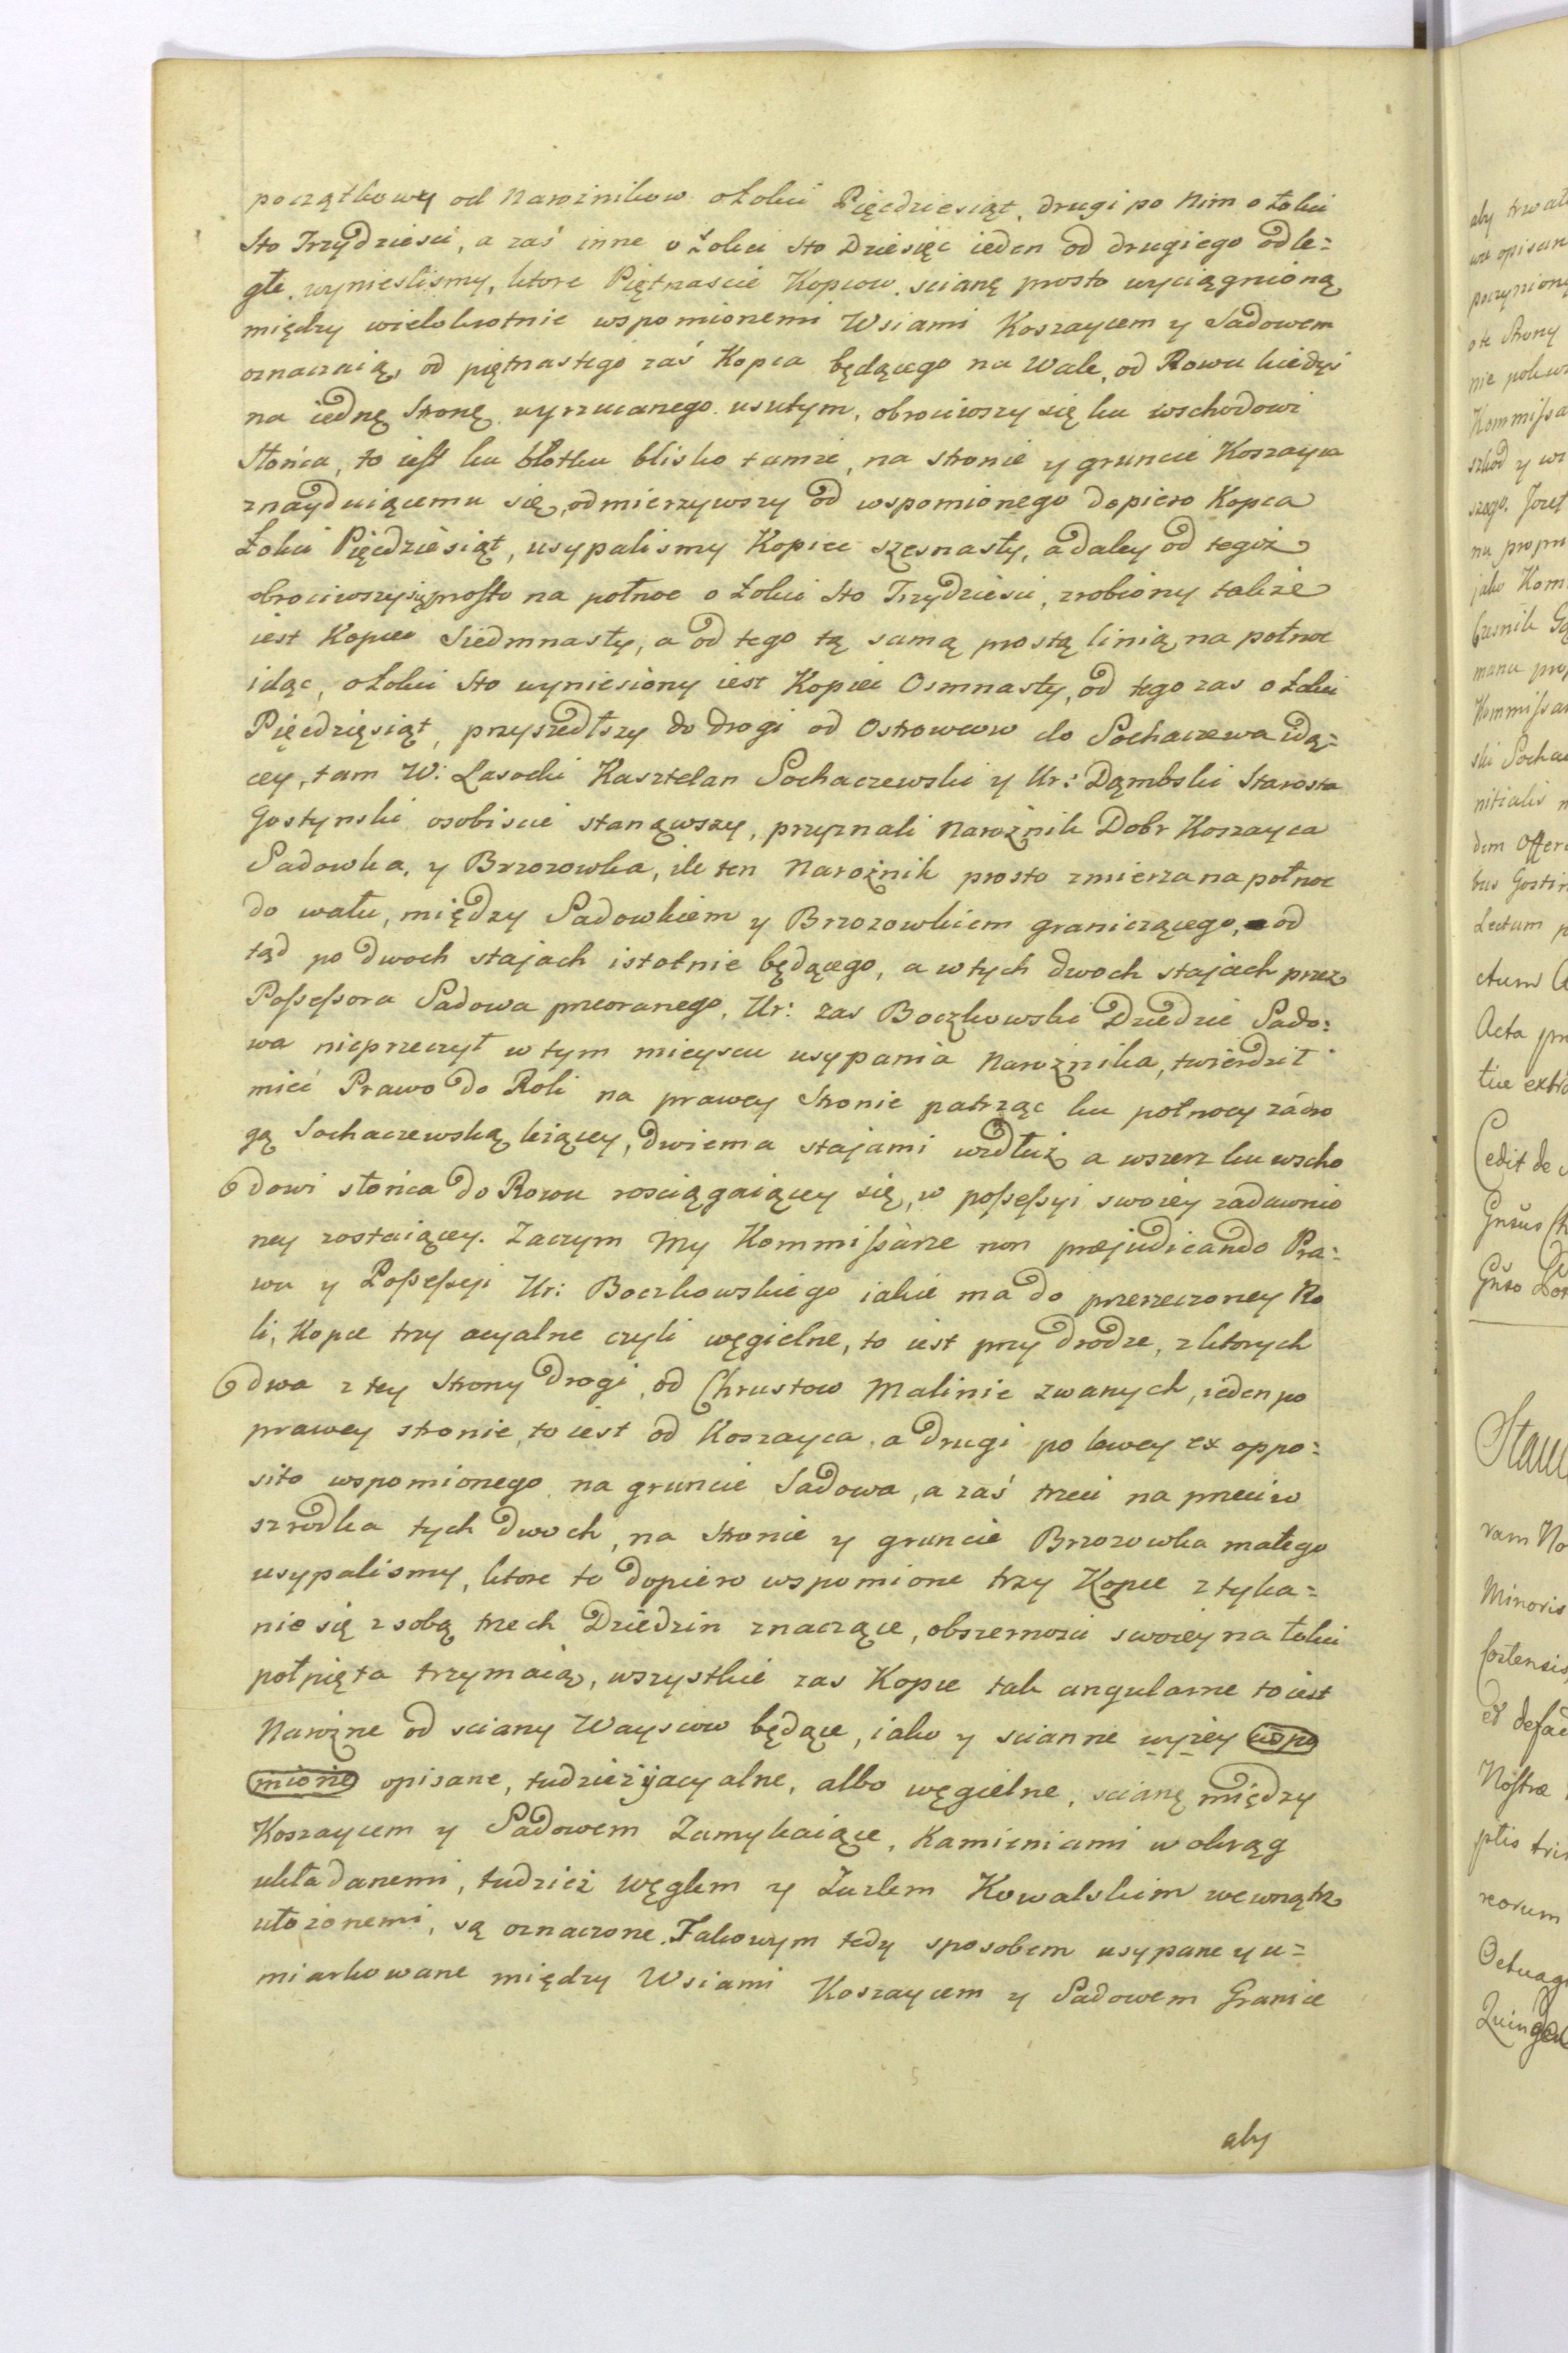 początkowy od Narożnikow o Łokci Pięcdziesiąt, drugi po Nim o Łokci
Sto Trzydziesci, a zaś inne o Łokci Sto Dziesięc ieden od drugiego odle=
głe, wynieslismy, ktore Piętnascie Kopcow, scianę prosto wyciągnioną
między wielokrotnie wspomionemi Wsiami Koszaycem y Sadowem
oznaczaią, od piętnastego zaś Kopca będącego na Wale, od Rowu kiedyś
na iednę Stronę wyrzucanego usutym, obrociwszy się ku wschodowi
Słońca, to iest ku błotku blisko tamże, na stronie y gruncie Koszayca
znayduiącemu się, odmierzywszy od wspomionego dopiero Kopca
Łokci Pięcdziesiąt, usypalismy Kopiec szesnasty, a daley od tegoż
obrociwszy się prosto na połnoc o Łokci Sto Trzydziesci, zrobiony także
iest Kopiec Siedmnasty, a od tego tą samą prostą linią na połnoc
idąc, o Łokci Sto wyniesiony iest Kopiec Osmnasty, od tego zas o Łokci
Pięcdzięsiąt, przyszedłszy do drogi od Ostrowcow do Sochaczewa idą=
cey, tam W: Lasocki Kasztelan Sochaczewski y Ur: Dąmbski Starosta
Gostynski osobiscie stanąwszy, przyznali Narożnik Dobr Koszayca
Sadowka, y Brzozowka, ile ten Narożnik prosto zmierza na połnoc
do wału, między Sadowkiem y Brzozowkiem graniczącego, od
tąd po dwoch stajach istotnie będącego, a w tych dwoch stajach przez
Possessora Sadowa przeoranego. Ur: zas Boczkowski Dziedzic Sado=
wa nieprzeczył w tym mieyscu usypania Narożnika, twierdził
mieć Prawo do Roli na prawey Stronie patrząc ku połnocy za dro
gą Sochaczewską leżącey, dwiema stajami wzdłuż a wszerz ku wscho
dowi słońca do Rowu rosciągaiącey się, w possessyi swoiey zadawnio
ney zostaiącey. Zaczym My Kommissarze non præjudicando Pra=
wu y Possessyi Ur: Boczkowskiego iakie ma do przerzeczoney Ro
li, Kopce trzy acyalne czyli węgielne, to iest przy drodze, z ktorych
dwa z tey Strony Drogi, od Chrustow Malinie zwanych, ieden po
prawey stronie, to iest od Koszayca, a drugi po lewey ex oppo=
sito wspomionego na gruncie Sadowa, a zaś trzeci na przeciw
szrodka tych dwoch, na Stronie y gruncie Brzozowka małego
usypalismy, ktore to dopiero wspomione trzy Kopce z tyka=
nie się z sobą trzech Dziedzin znaczące, obszernosci swoiey na łokci
połpięta trzymaią, wszystkie zas Kopce tak angularne to iest
Narożne od sciany Wayscow będące, iako y scianne wyżey wspo
mione opisane, tudzież yacyalne, albo węgielne, scianę między
Koszaycem y Sadowem Zamykaiące, Kamieniami w okrąg
układanemi, tudzież węglem y Żużlem Kowalskim wewnątrz
ułożonemi, są oznaczone. Takowym tedy sposobem usypane y u=
miarkowane między Wsiami Koszaycem y Sadowem Granice
aby